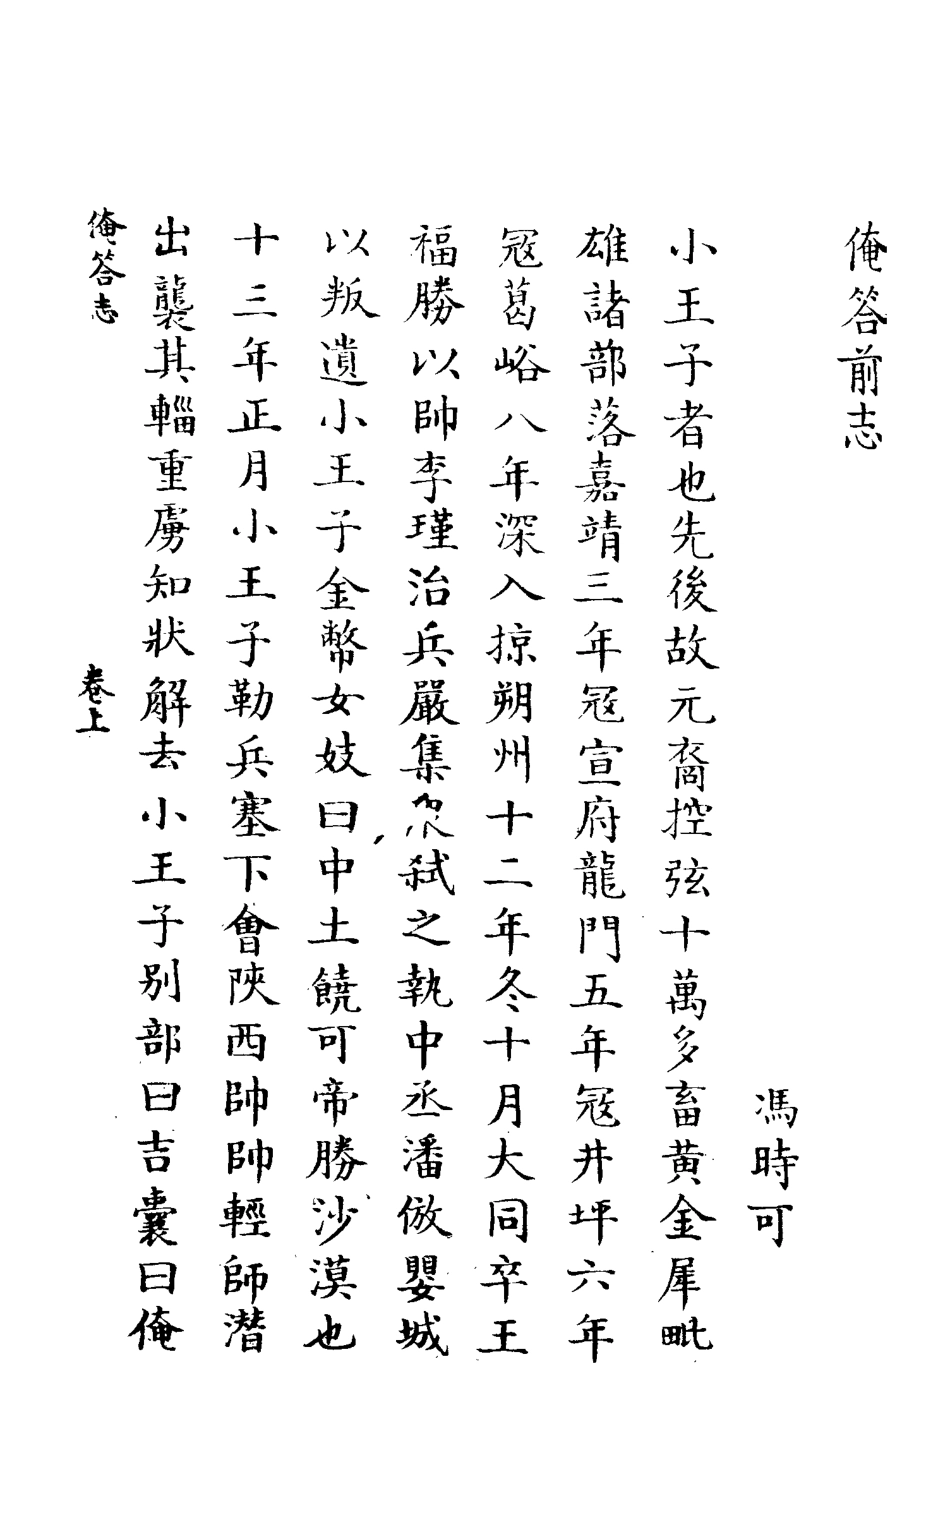 俺答前志
馮時可
小王子者也先後故元裔控弦十萬多畜黄金犀毗
雄諸部落嘉靖三年冦宣府龍門五年冦井坪六年
冦葛峪八年深入掠朔州十二年冬十月大同卒王
福勝以帥李瑾治兵嚴集衆弑之執中丞潘倣嬰城
以叛遺小王子金幣女妓曰中土饒可帝勝沙漠也
十三年正月小王子勒兵塞下會陝西帥帥輕師潛
出襲其輜重虜知狀解去小王子别部曰吉囊曰俺
俺答志
卷上